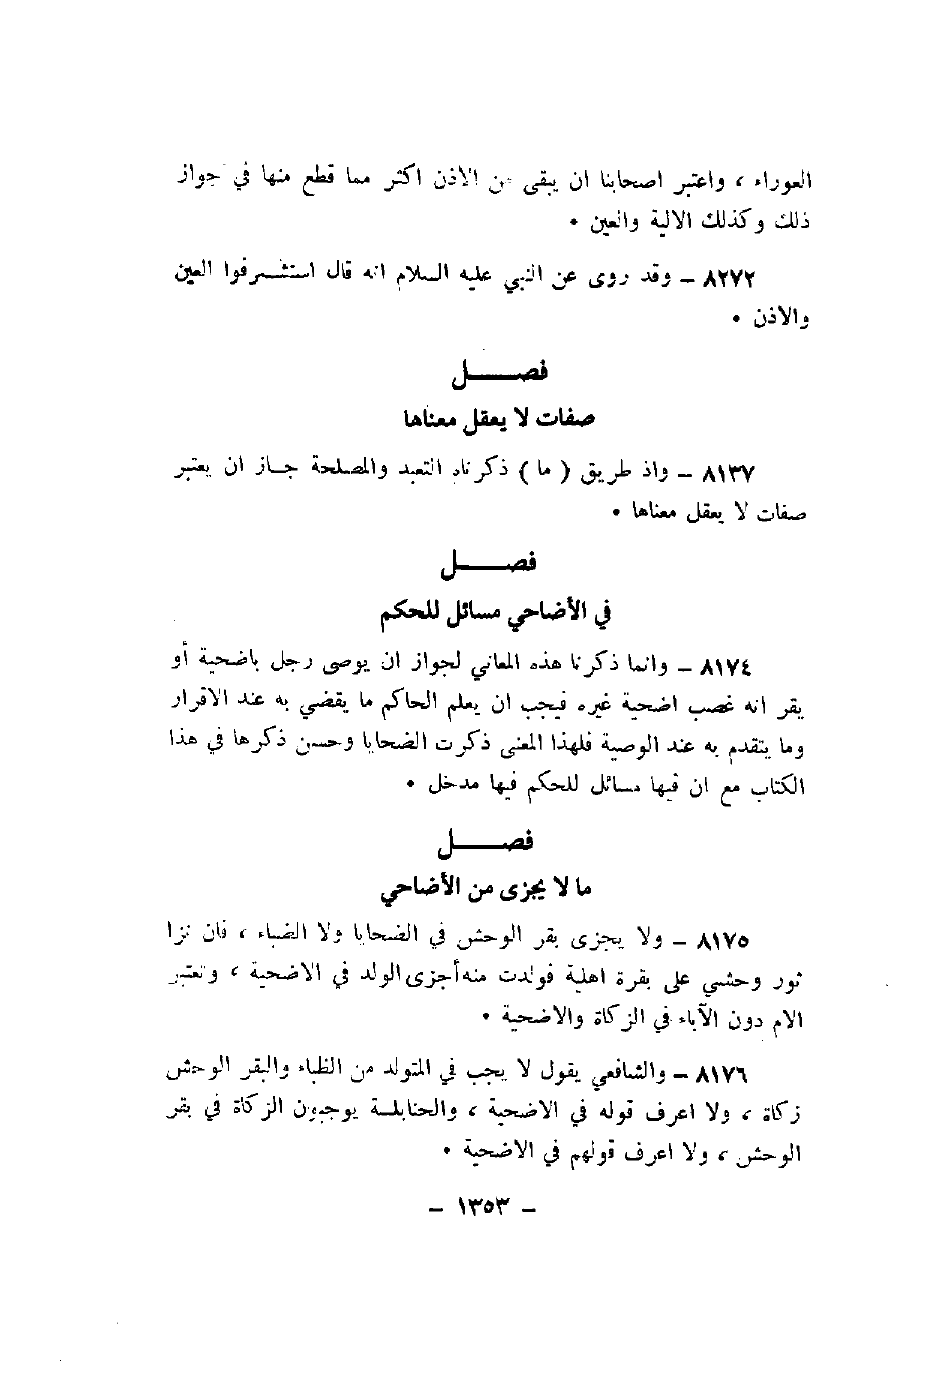 العوراء ، واعتبر اصحابنا ان يبقى من الاذن اكثر مما قطع منها في جواز
ذلك وكذلك الالية والعين .
٨٢٧٢ – وقد روى عن النبي عليه السلام انه قال استشرفوا العين
والاذن .
فصـــــل
صفات لا يعقل معناها
٨١٣٧ – واذ طريق ( ما ) ذكرناه التعبد والمصلحة جـاز ان يعتبر
صفات لا يعقل معناها .
فصـــــل
في الأضاحي مسائل للحكم
٨١٧٤ – وانما ذكرنا هذه المعاني لجواز ان يوصى رجل باضحية أو
يقر انه غصب اضحية غيره فيجب ان يعلم الحاكم ما يقضي به عند الاقرار
وما يتقدم به عند الوصية فلهذا المعنى ذكرت الضحايا وحسن ذكرها في هذا
الكتاب مع ان فيها مسائل للحكم فيها مدخل .
فصـــــل
ما لا يجزى من الأضاحي
٨١٧٥ – ولا يجزى بقر الوحش في الضحايا ولا الضباء ، فان نزا
ثور وحشي على بقرة اهلية فولدت منه أجزى الولد في الاضحية ، وتعتبر
الام دون الآباء في الزكاة والاضحية .
٨١٧٦ – والشافعي يقول لا يجب في المتولد من الظباء والبقر الوحش
زكاة ، ولا اعرف قوله في الاضحية ، والحنابلـة يوجبون الزكاة في بقر
الوحش ، ولا اعرف قولهم في الاضحية .
– ١٣٥٣ –